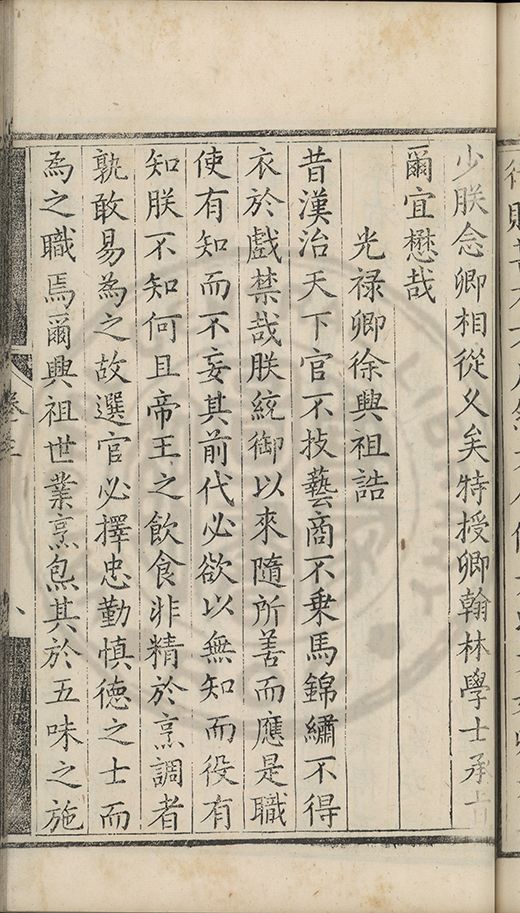 少朕念卿相從乆矣特授卿翰林學士承旨
爾宜懋哉
光禄卿徐興祖誥
昔漢治天下官不技藝商不乗馬錦繡不得
衣於戲禁哉朕統御以來隨所善而應是職
使有知而不妄其前代必欲以無知而役有
知朕不知何且帝王之飲食非精於烹調者
孰敢易為之故選官必擇忠勤慎德之士而
為之職焉爾興祖世業烹炰其於五味之施